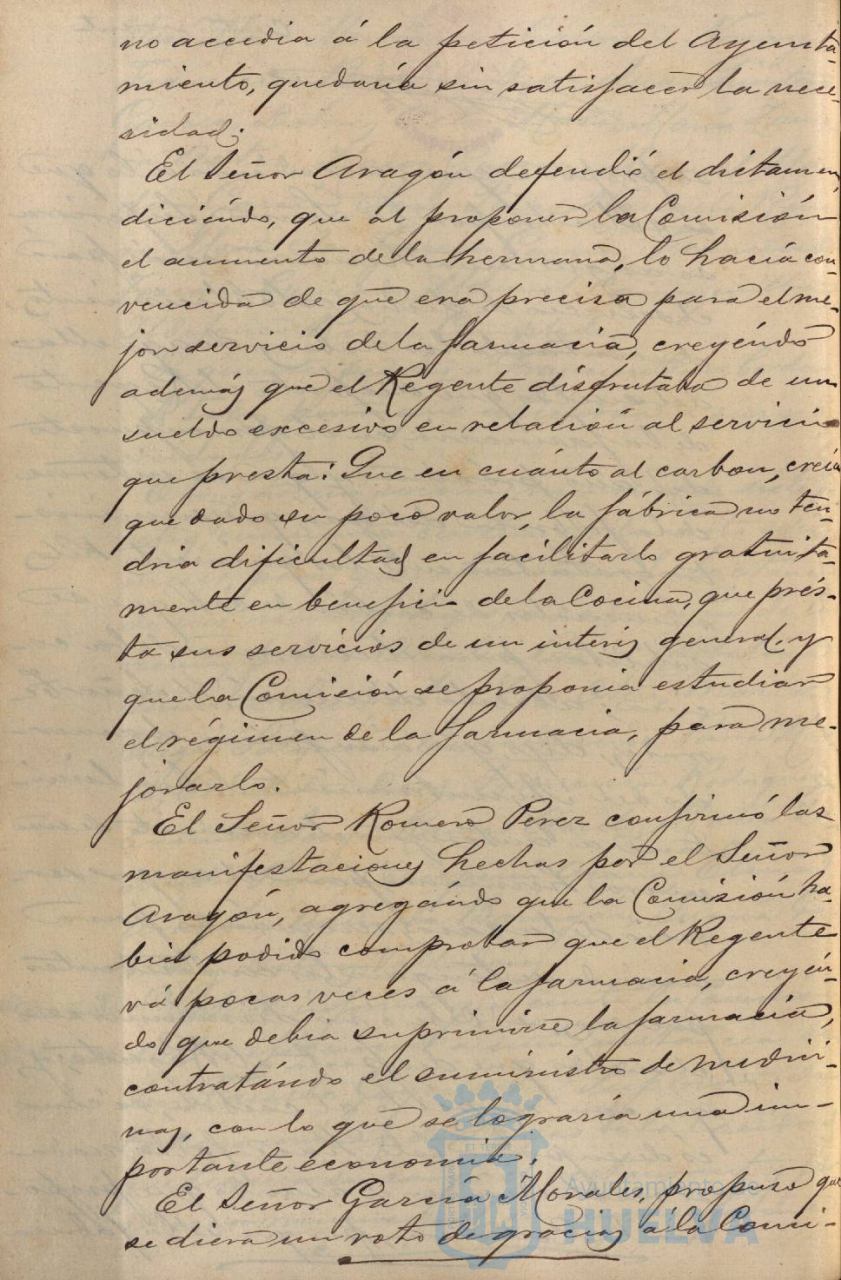 no accedia á la petición del Ayunta-
miento, quedaría sin satisfacer la nece-
sidad.
El Señor Aragón defendió el dictamen,
diciéndo, que al proponer la Comisión
el aumento de la hermana, lo hacía con-
vencida de que era precisa para el me-
jor servicio de la farmacia, creyéndo
además que el Regente disfrutaba de un
sueldo excesivo en relación al servicio
que presta: Que en cuánto al carbon, creia
que dado su poco valor, la fábrica no ten-
dria dificultad en facilitarlo gratuita-
mente en beneficio de la Cocina, que prés-
ta sus servicios de un interés general, y
que la Comisión se proponia estudiar
el régimen de la farmacia, para me-
jorarlo.
El Señor Romero Perez confirmó las
manifestaciones hechas por el Señor
Aragón, agregándo que la Comisión ha-
bia podido comprobar que el Regente
vá pocas veces á la farmacia, creyén-
do que debia suprimirse la farmacia,
contratándo el suministro de medici-
nas, con lo que se lograría una im-
portante economia.
El Señor García Morales, propuso que
se diera un voto de gracias á la Comi-
Ayuntamiento
HUELVA